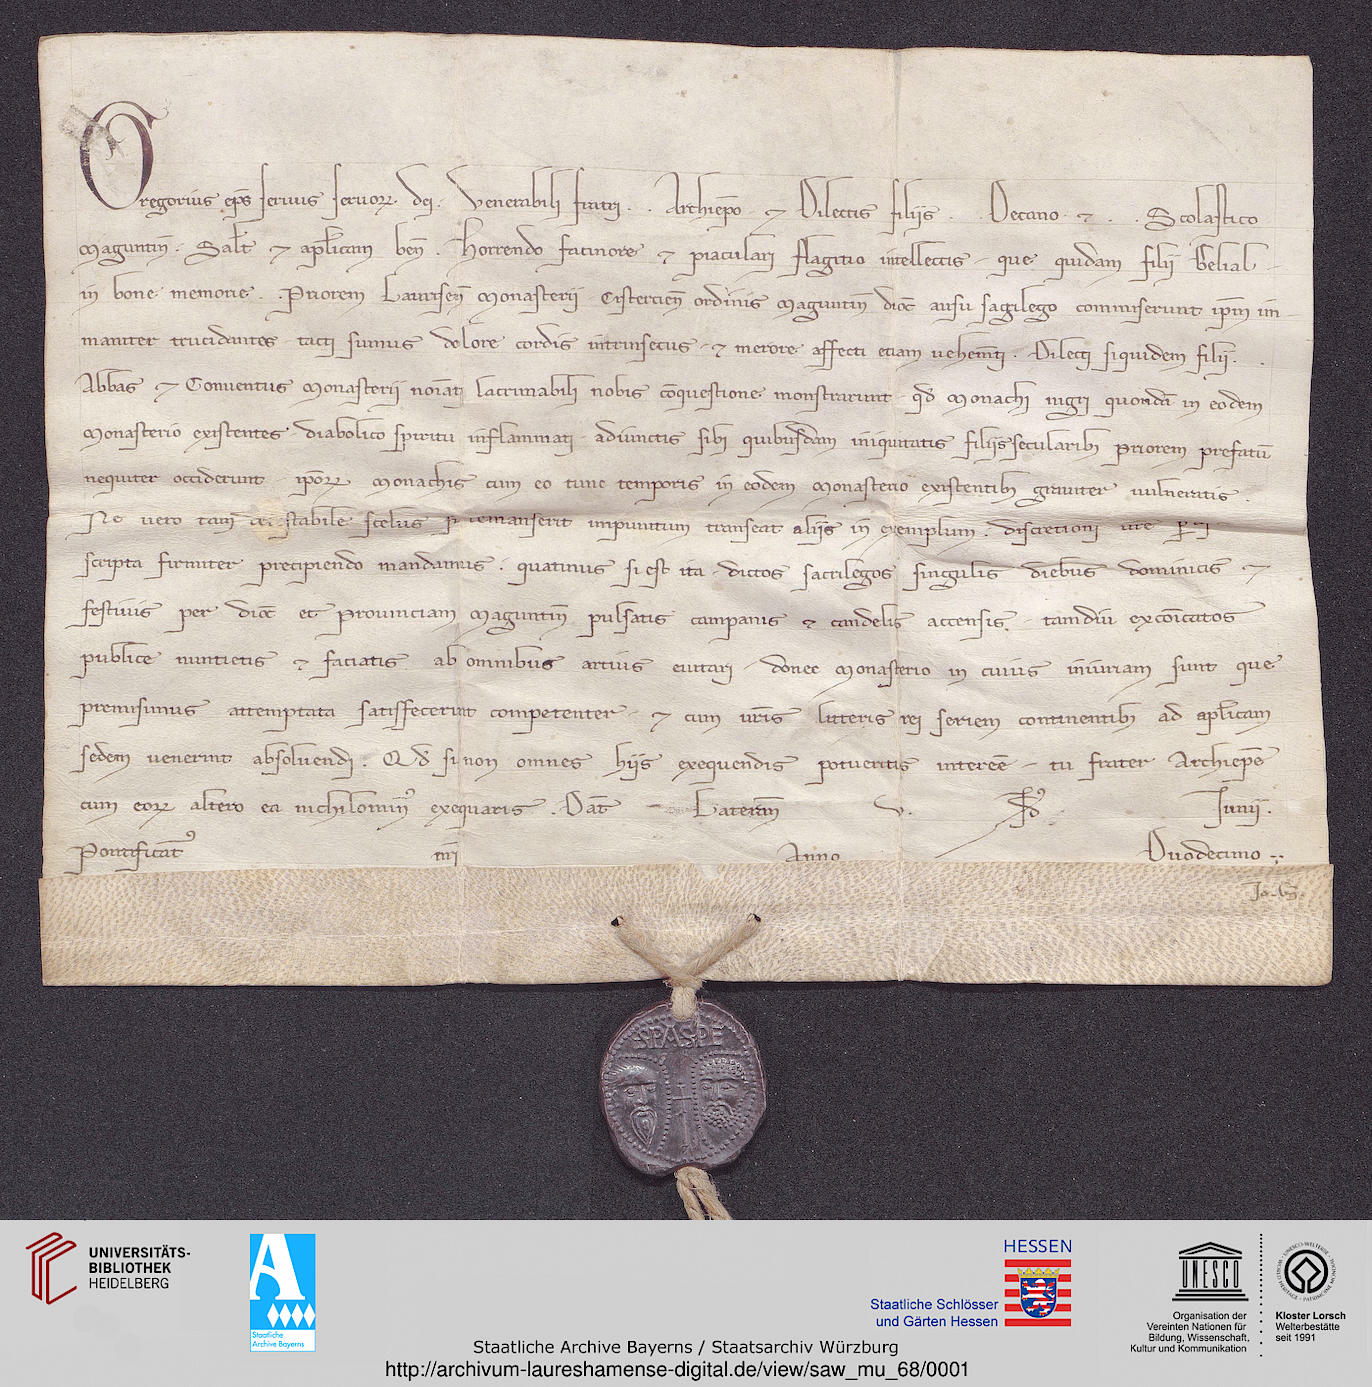 Gregorius ep̄s seruus seruoꝝ dei. Venerabili fratri . . Archiep̄o ⁊ Dilectis filijs . . Decano ⁊ . . Scolastico
Maguntiñ. Sal̄t ⁊ ap̄licam beñ. Horrendo facinore ⁊ piaculari flagitio intellectis que quidam filij Belial
in bone memorie . . Priorem Laurisseñ Monasterij Cistercieñ ordinis Maguntiñ dioc̄ ausu sagilego commiserunt ip̄m in-
maniter trucidantes tacti sumus dolore cordis intrinsecus ⁊ merore affecti etiam uehemēti. Dilecti siquidem filij . .
Abbas ⁊ Conuentus Monasterij nōīati lacrimabili nobis cōquestione monstrarunt qd̄ Monachi nigri quondā in eodem
Monasterio existentes diabolico spiritu inflammati adiunctis sibi quibusdam iniquitatis filijs secularibꝫ Priorem prefatū
nequiter occiderunt ip̄oꝝ monachis cum eo tunc temporis in eodem Monasterio existentibꝫ grauiter uulneratis.
Ne uero tam detestabile scelus si remanserit impunitum transeat alijs in exemplum. discretioni ur̄e
scripta firmiter precipiendo mandamus. quatinus si est ita dictos sacrilegos singulis diebus dominicis ⁊
festiuis per dioc̄ et Prouinciam Maguntiñ pulsatis campanis ⁊ candelis accensis tamdiu excōicatos
publice nuntietis ⁊ faciatis ab omnibus artius euitari donec Monasterio in cuius iniuriam sunt que
premisimus attemptata satisfecerint competenter ⁊ cum ur̄is litteris rei seriem continentibꝫ ad ap̄licam
sedem uenerint absoluendi. Qd̄ si non omnes hijs exequendis potueritis interēe tu frater Archiep̄e
cum eoꝝ altero ea nichilomin⁹ exequaris. Dat̄ Laterañ v. Id̄ Junij.
Pontificat⁹ nr̄i Anno Duodecimo
SPASPE
UNIVERSITÄTS-
BIBLIOTHEK
HEIDELBERG
A
Staatliche
Archive Bayerns
HESSEN
Staatliche Schlösser
und Gärten Hessen
UNESCO
Organisation der
Vereinten Nationen für
Bildung, Wissenschaft,
Kultur und Kommunikation
Kloster Lorsch
Welterbestätte
seit 1991
Staatliche Archive Bayerns / Staatsarchiv Würzburg
http://archivum-laureshamense-digital.de/view/saw_mu_68/0001